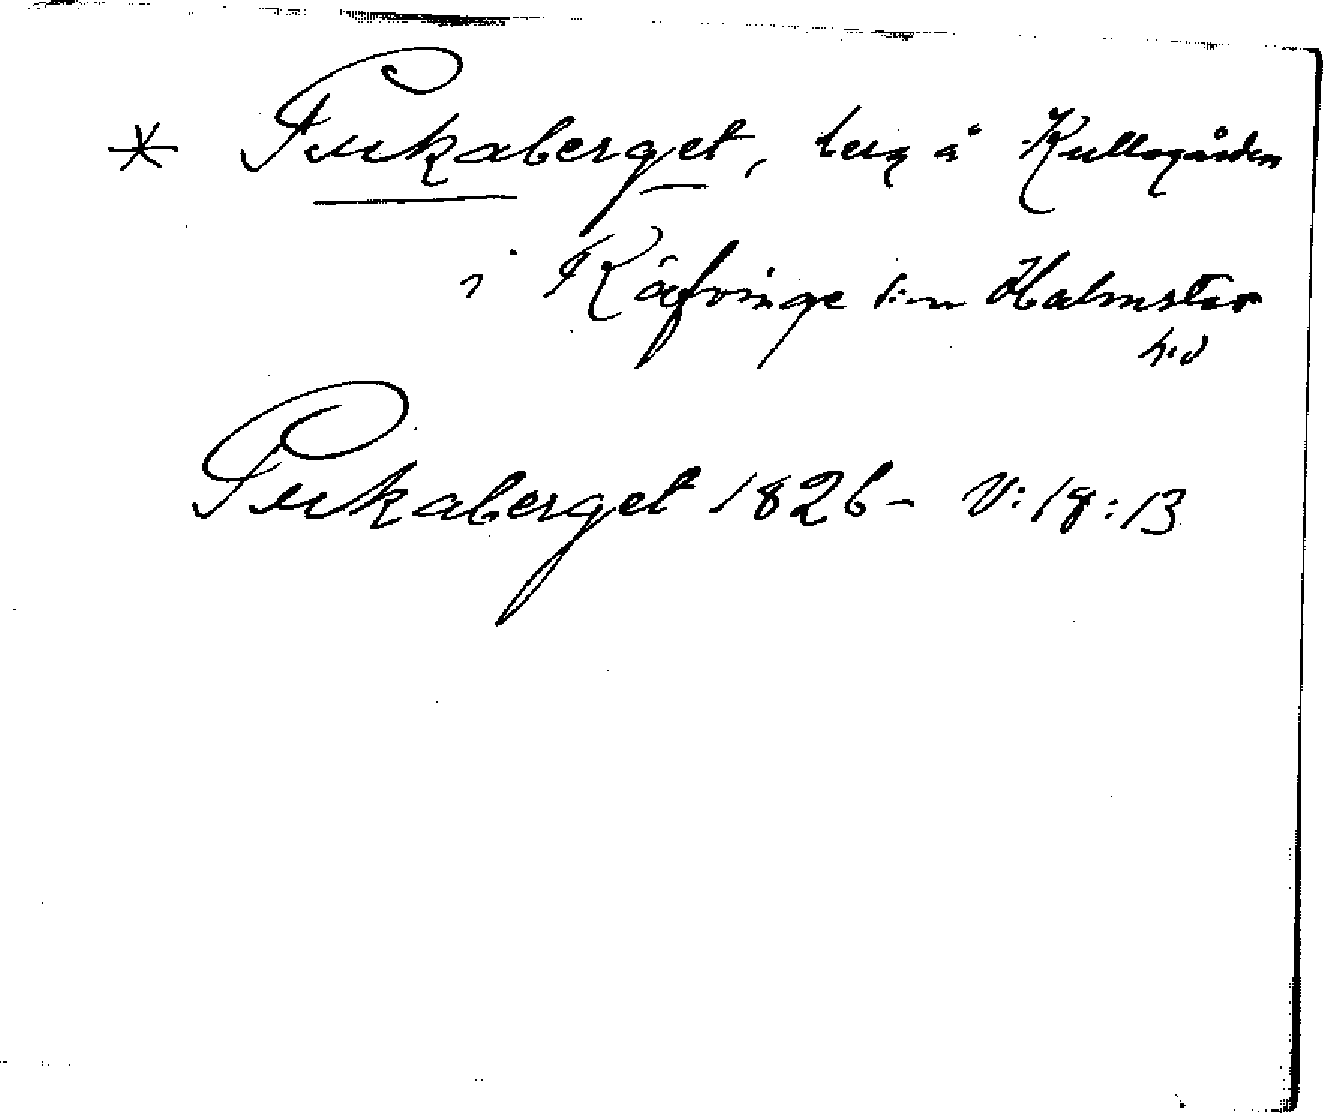 * Pukaberget, berg å Kullagården
i Räfvinge s:n Halmstad
h:d
Pukaberget 1826 - V:18:13